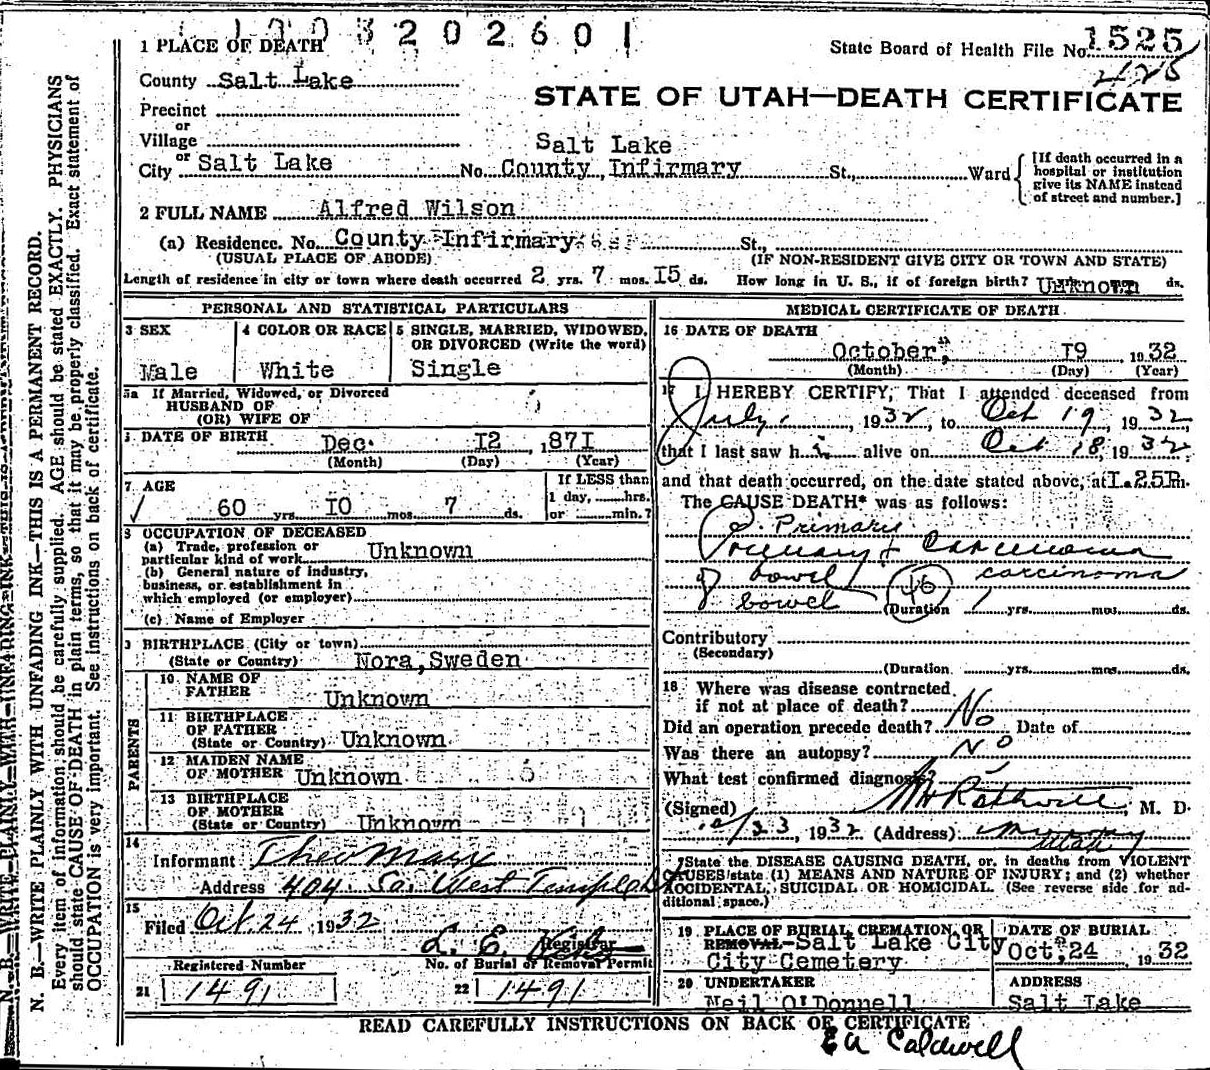 1003202601
1 PLACE OF DEATH
State Board of Health File No. 1525
425
County Salt Lake
STATE OF UTAH—DEATH CERTIFICATE
Precinct
or
Village
Salt Lake
City or Salt Lake No. County Infirmary St., Ward
[If death occurred in a hospital or institution give its NAME instead of street and number.]
2 FULL NAME Alfred Wilson
(a) Residence. No. County Infirmary St.,
(USUAL PLACE OF ABODE) (IF NON-RESIDENT GIVE CITY OR TOWN AND STATE)
Length of residence in city or town where death occurred 2 yrs. 7 mos. 15 ds. How long in U. S., if of foreign birth? Unknown ds.
PERSONAL AND STATISTICAL PARTICULARS
3 SEX 4 COLOR OR RACE 5 SINGLE, MARRIED, WIDOWED, OR DIVORCED (Write the word)
Male White Single
5a If Married, Widowed, or Divorced
HUSBAND OF
(OR) WIFE OF
DATE OF BIRTH Dec. 12 1871
(Month) (Day) (Year)
7 AGE If LESS than
1 day, hrs.
60 yrs. 10 mos. 7 ds. or min.?
8 OCCUPATION OF DECEASED
(a) Trade, profession or
particular kind of work Unknown
(b) General nature of industry,
business, or establishment in
which employed (or employer)
(c) Name of Employer
9 BIRTHPLACE (City or town)
(State or Country) Nora, Sweden
PARENTS
10 NAME OF
FATHER Unknown
11 BIRTHPLACE
OF FATHER
(State or Country) Unknown
12 MAIDEN NAME
OF MOTHER Unknown
13 BIRTHPLACE
OF MOTHER
(State or Country) Unknown
14
Informant
Address 404 So. West Temple
15
Filed Oct. 24 1932
L. E.
Registrar
Registered Number No. of Burial or Removal Permit
21 1491 22 1491
MEDICAL CERTIFICATE OF DEATH
16 DATE OF DEATH
October, 19 1932
(Month) (Day) (Year)
17 I HEREBY CERTIFY, That I attended deceased from
July 1932, to Oct 19, 1932,
that I last saw h i alive on Oct 18, 1932
and that death occurred, on the date stated above, at 1.25 P m.
The CAUSE DEATH* was as follows:
Primary
Carcinoma
of bowel 46 carcinoma
of bowel (Duration 1 yrs. mos. ds.
Contributory
(Secondary)
(Duration yrs. mos. ds.
18 Where was disease contracted
if not at place of death?
Did an operation precede death? No Date of
Was there an autopsy? No
What test confirmed diagnosis?
(Signed) Rothwell, M. D.
10/23 1932 (Address) Murray
Utah
*State the DISEASE CAUSING DEATH, or, in deaths from VIOLENT
CAUSES state (1) MEANS AND NATURE OF INJURY; and (2) whether
ACCIDENTAL, SUICIDAL OR HOMICIDAL. (See reverse side for ad-
ditional space.)
19 PLACE OF BURIAL CREMATION, OR DATE OF BURIAL
REMOVAL Salt Lake City Oct. 24 1932
City Cemetery
20 UNDERTAKER ADDRESS
Neil O'Donnell Salt Lake
READ CAREFULLY INSTRUCTIONS ON BACK OF CERTIFICATE
E A Caldwell
N. B.—WRITE PLAINLY WITH UNFADING INK—THIS IS A PERMANENT RECORD.
Every item of information should be carefully supplied. AGE should be stated EXACTLY. PHYSICIANS
should state CAUSE OF DEATH in plain terms, so that it may be properly classified. Exact statement of
OCCUPATION is very important. See instructions on back of certificate.